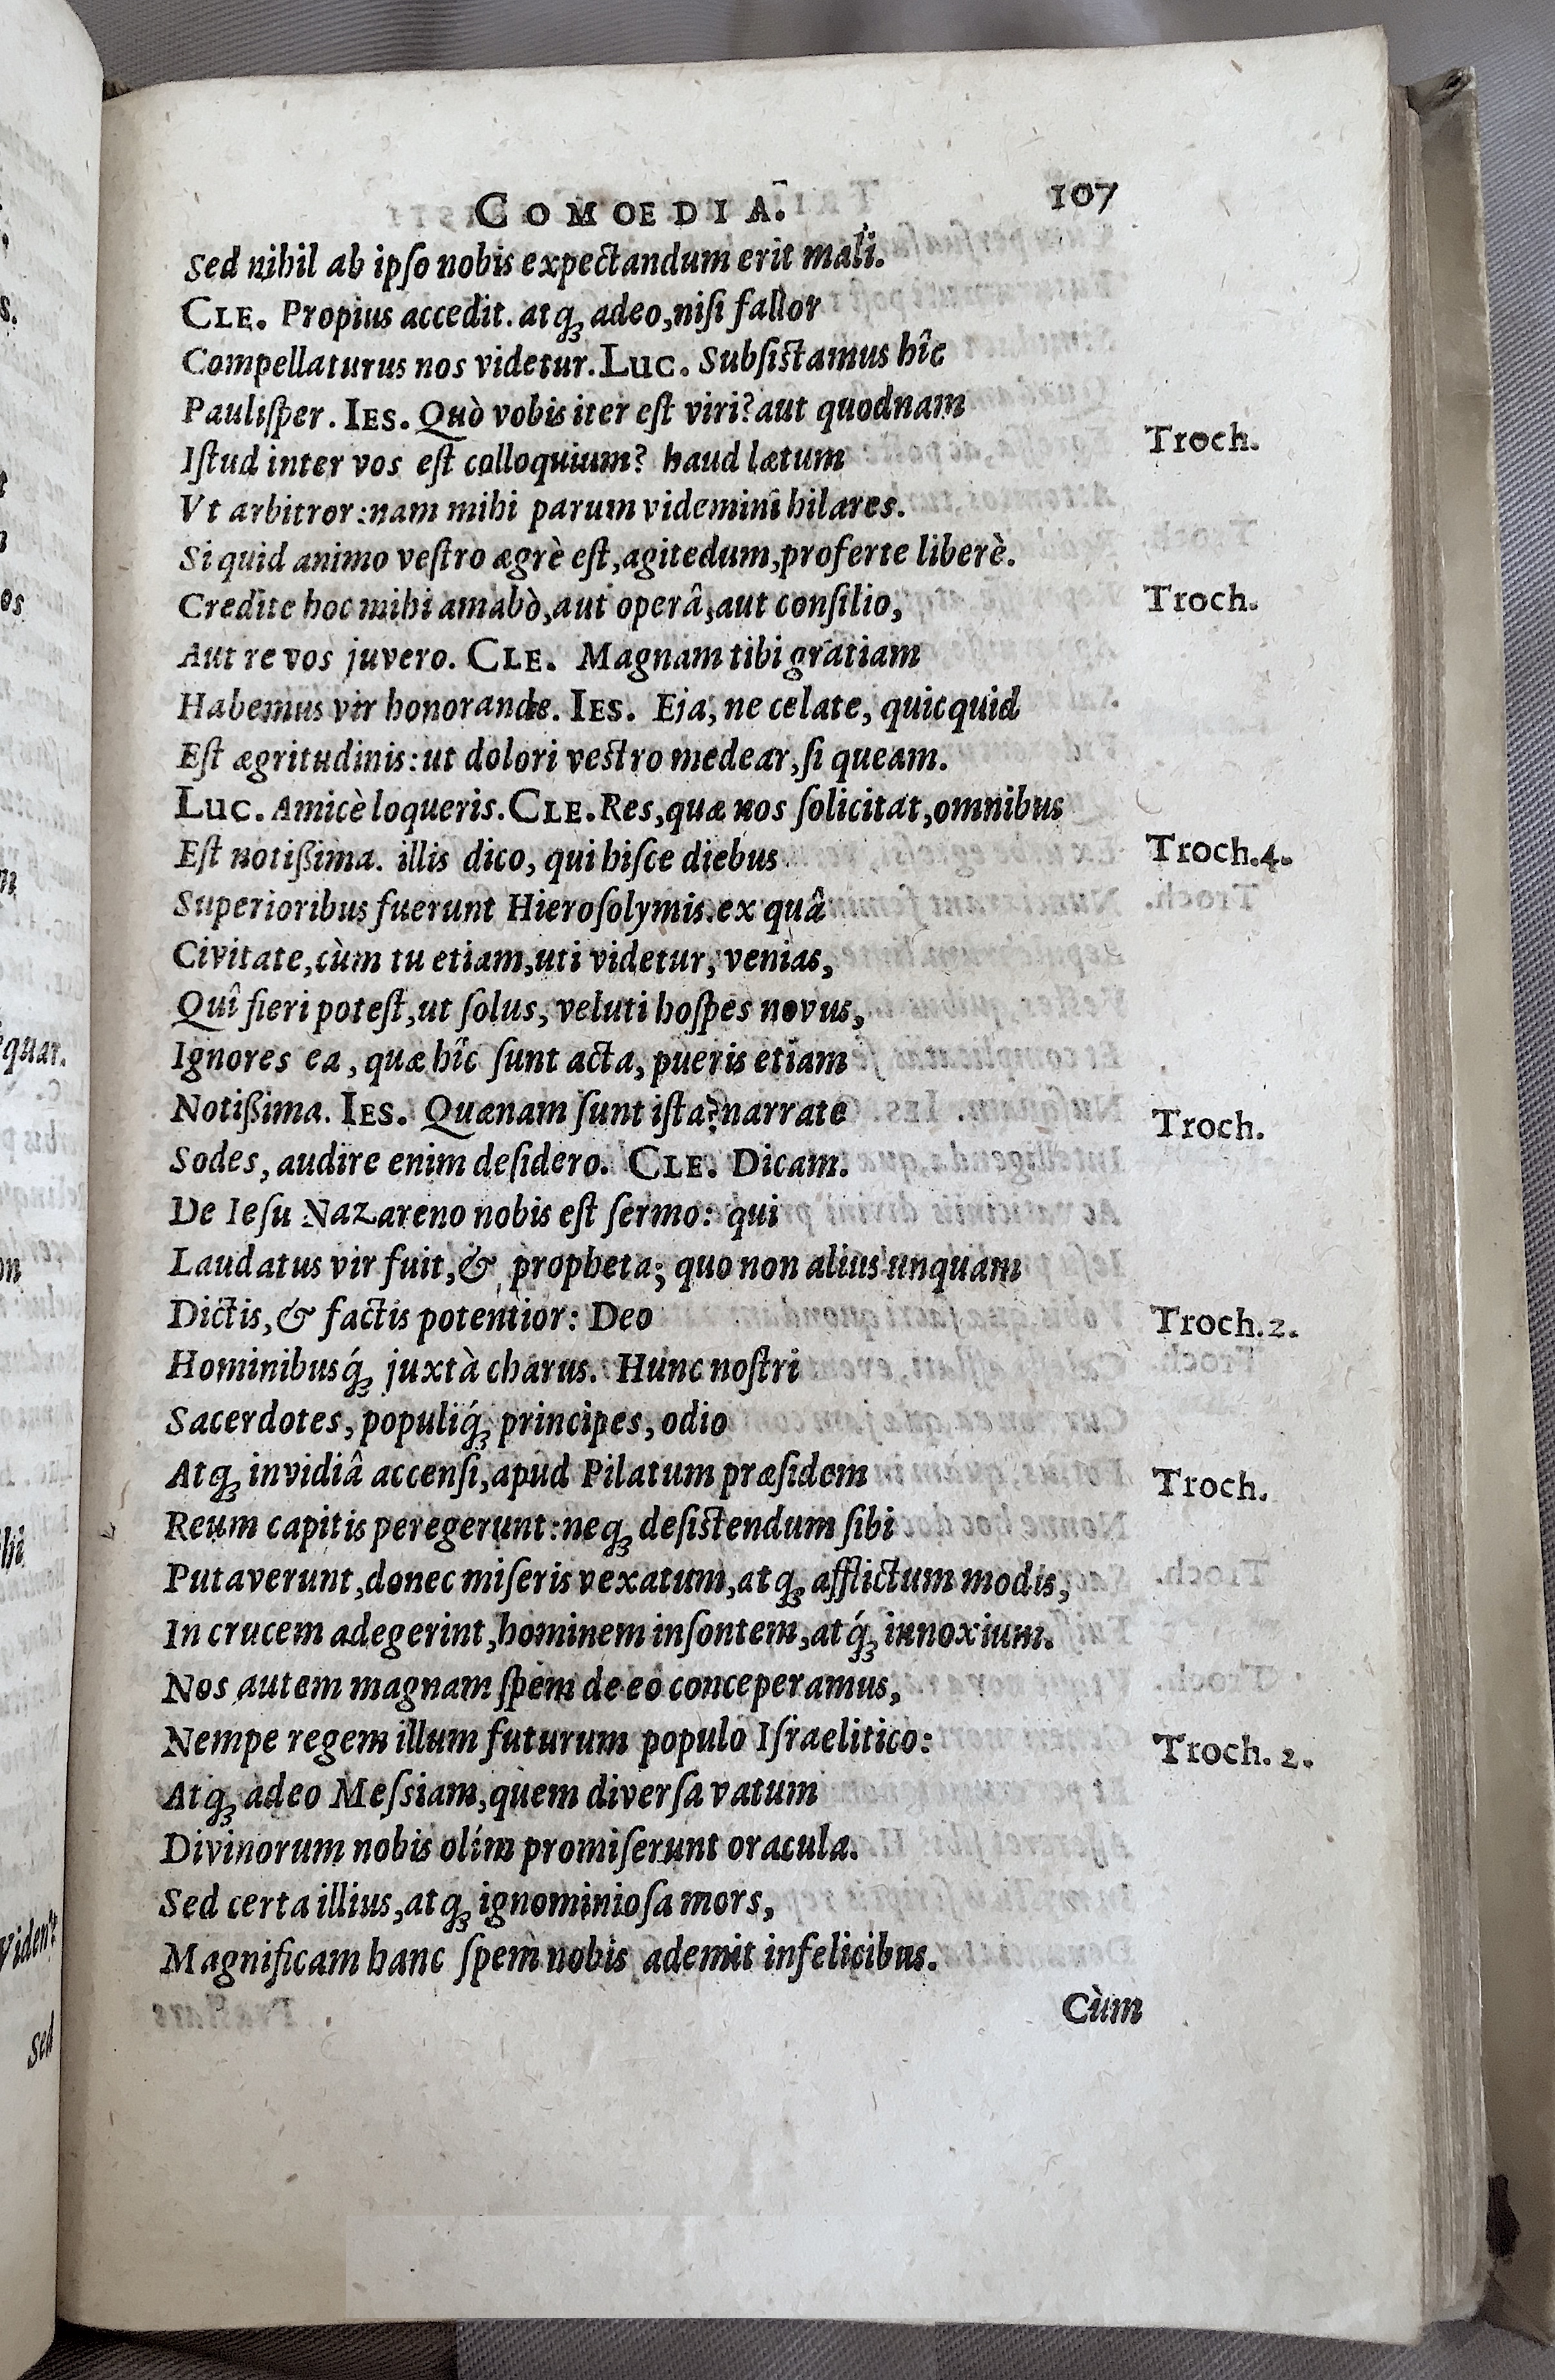 COMOEDIA. 107
Sed nihil ab ipſo nobis expectandum erit mali.
CLE. Propius accedit. atq́; adeo, niſi fallor
Compellaturus nos videtur. Luc. Subſiſtamus hîc
Pauliſper. IES. Quò vobis iter eſt viri? aut quodnam
Troch.
Iſtud inter vos eſt colloquium? haud lætum
Vt arbitror: nam mihi parum videmini hilares.
Si quid animo veſtro ægrè eſt, agitedum, proferte liberè.
Credite hoc mihi amabò, aut operâ, aut conſilio,
Troch.
Aut re vos juvero. CLE. Magnam tibi gratiam
Habemus vir honorande. IES. Eja, ne celate, quicquid
Eſt ægritudinis: ut dolori veſtro medear, ſi queam.
Luc. Amicè loqueris. CLE. Res, quæ nos ſolicitat, omnibus
Eſt notißima. illis dico, qui hiſce diebus
Troch.4.
Superioribus fuerunt Hieroſolymis. ex quâ
Civitate, cùm tu etiam, uti videtur, venias,
Quî fieri poteſt, ut ſolus, veluti hoſpes novus,
Ignores ea, quæ hîc ſunt acta, pueris etiam
Notißima. IES. Quænam ſunt iſta? narrate
Troch.
Sodes, audire enim deſidero. CLE. Dicam.
De Ieſu Nazareno nobis eſt ſermo: qui
Laudatus vir fuit, & propheta; quo non alius unquam
Dictis, & factis potentior: Deo
Troch.2.
Hominibusq́; juxtà charus. Hunc noſtri
Sacerdotes, populiq́; principes, odio
Atq; invidiâ accenſi, apud Pilatum præſidem
Troch.
Reum capitis peregerunt: neq; deſiſtendum ſibi
Putaverunt, donec miſeris vexatum, atq; afflictum modis,
In crucem adegerint, hominem inſontem, atq́; innoxium.
Nos autem magnam ſpem de eo conceperamus,
Nempe regem illum futurum populo Iſraelitico:
Troch. 2.
Atq; adeo Meſsiam, quem diverſa vatum
Divinorum nobis olim promiſerunt oracula.
Sed certa illius, atq; ignominioſa mors,
Magnificam hanc ſpem nobis ademit infelicibus.
Cùm